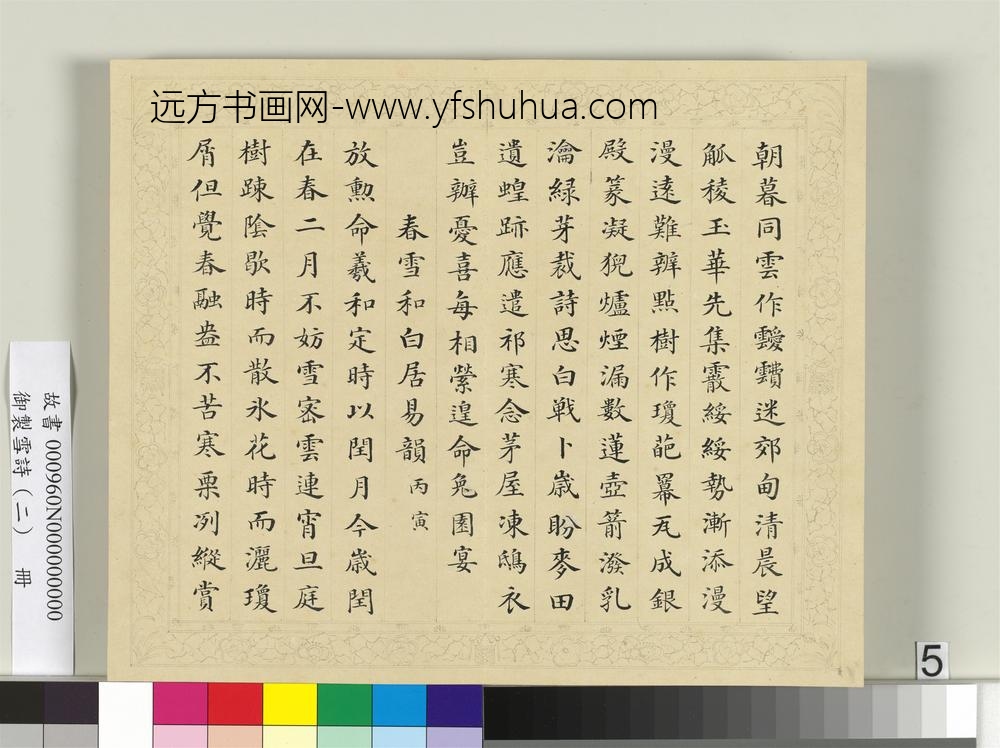 远方书画网-www.yfshuhua.com
朝暮同雲作靉靅迷郊甸清晨望
觚稜玉華先集霰綏綏勢漸添漫
漫遠難辨點樹作瓊葩羃瓦成銀
殿篆凝猊爐煙漏數蓮壺箭潑乳
瀹緑芽裁詩思白戰卜歲盼麥田
遺蝗跡應遣祁寒念茅屋凍鴟衣
豈辦憂喜每相縈遑命兔園宴
春雪和白居易韻丙寅
放勲命羲和定時以閏月今歲閏
在春二月不妨雪宻雲連宵旦庭
樹踈陰歇時而散氷花時而灑瓊
屑但覺春融盎不苦寒栗冽縱賞
故書000960N000000000
御製雪詩(二) 冊
5